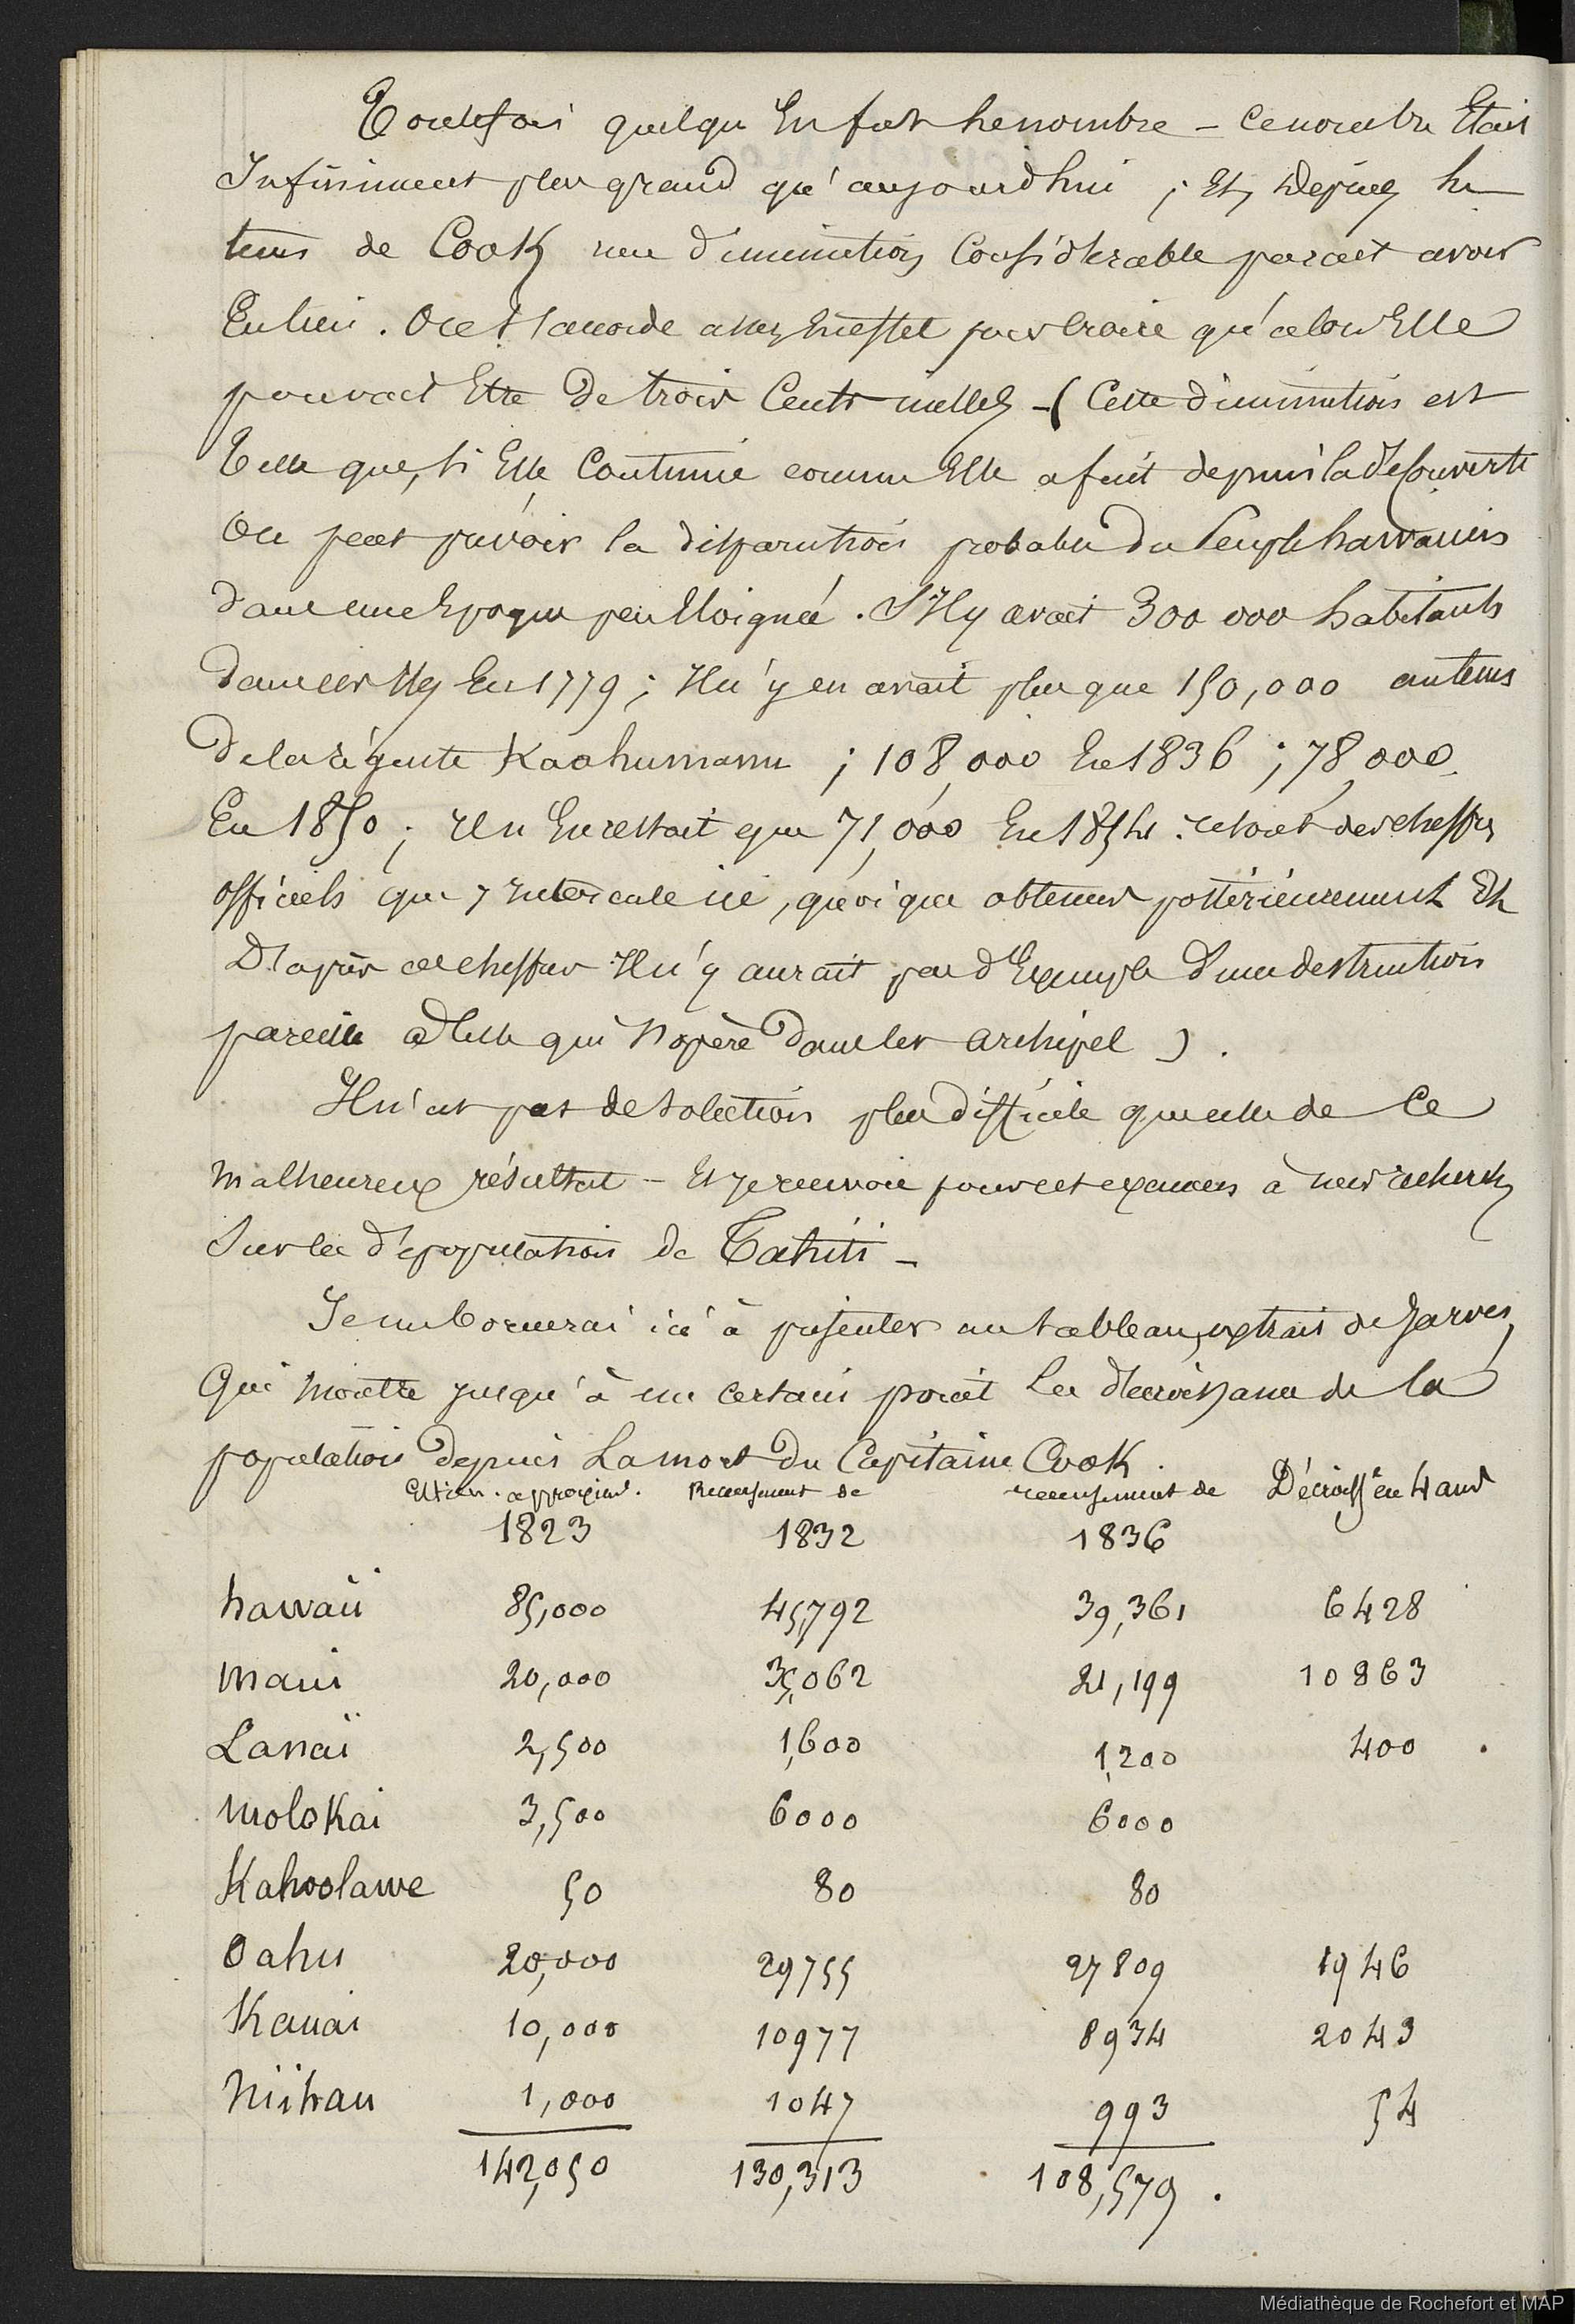 Toutefois quelqu'En fut le nombre - ce nombre Etait
Infiniment plus grand qu'aujourdhui ; Et, depuis le
tems de Cook une diminution Considerable parait avoir
Eu lieu. On s'accorde assez En effet pour croire qu'alors Elle
pouvait Etre de trois Cents milles - ( Cette diminution est
telle que, si Elle Continue comme Elle a fait depuis la découverte
On peut prévoir la disparution probable du Peuple hawaiien
dans une Epoque peu Eloignée. S'Il y avait 300 000 habitants
dans ces Iles En 1779 ; Il n'y en avait plus que 150,000 au tems
de la régente Kaahumanu ; 108,000 En 1836 ; 78,000
En 1850 ; Il n'En restait que 71,000 En 1854 : ce sont des chiffres
officiels que j'Intercale ici, quoique obtenus postérieurement Et
D'après ces chiffres Il n'y aurait pas d'Exemple d'une destruction
pareille à celle qui s'opère dans les archipel ).
Il n'est pas de solution plus difficile que celle de Ce
malheureux résultat - Et je renvoie pour cet examen à mes recherches
Sur la dépopulation de Tahiti -
Je me bornerai ici à présenter un tableau, extrait de Jarves,
Qui montre jusqu'à un certain point la décroissance de la
population depuis La mort du Capitaine Cook.
Estim. approxim. Recensement de recensement de Décroisste en 4 ans
1823 1832 1836
hawaii 85,000 45,792 39,361 6428
maui 20,000 35,062 21,199 10863
Lanaï 2,500 1,600 1,200 400
molokai 3,500 6000 6000
Kahoolawe 50 80 80
Oahu 20,000 29755 27809 1946
Kauai 10,000 10977 8934 2043
Niihau 1,000 1047 993 54
142,050 130,313 108,579.
Médiathèque de Rochefort et MAP